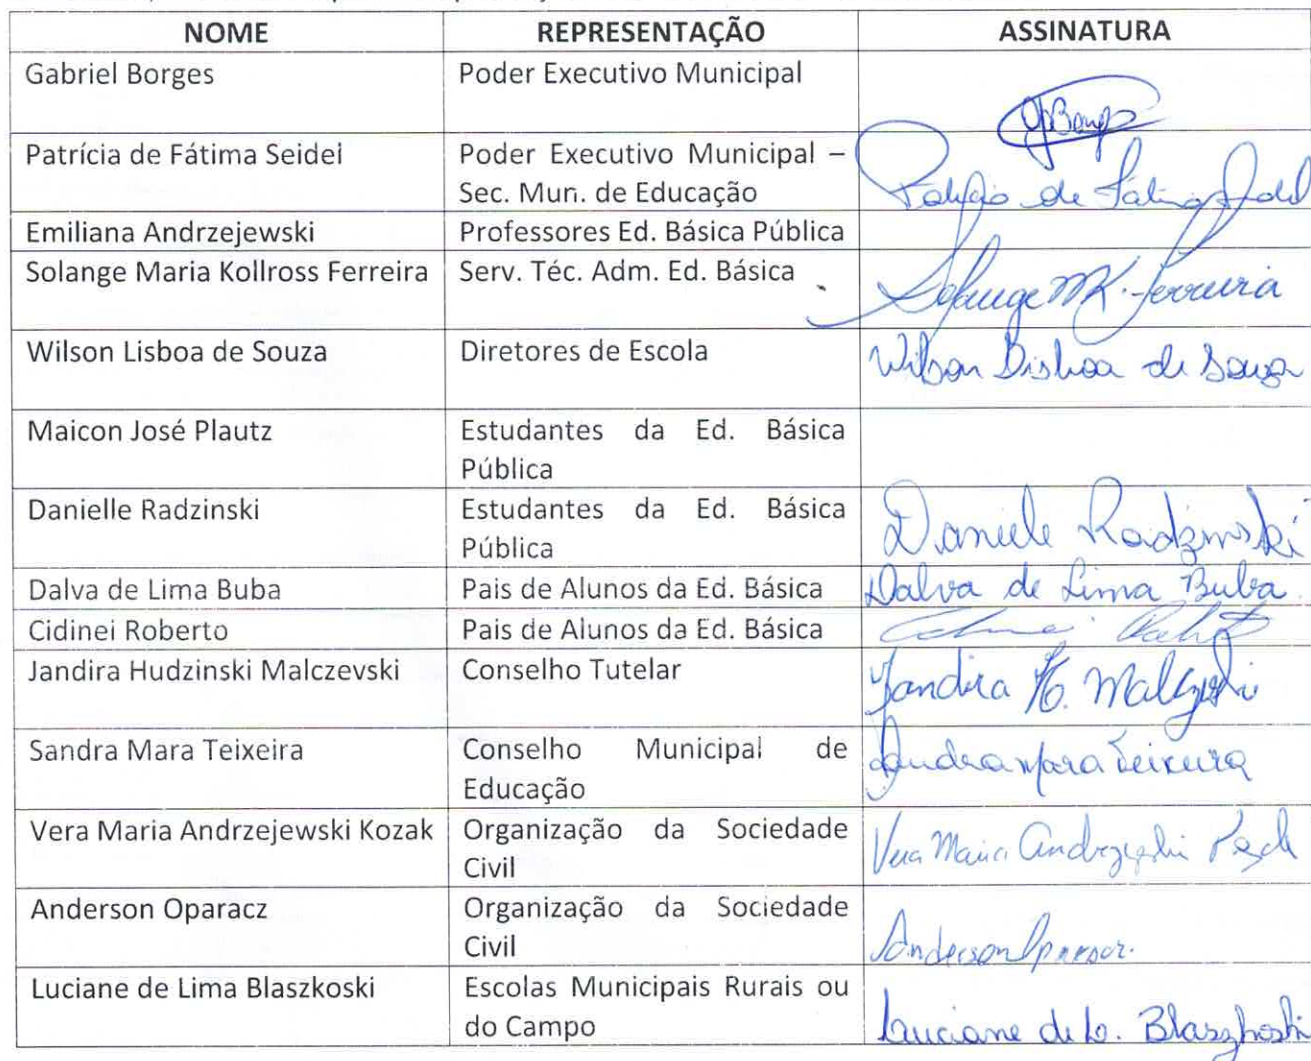 NOME REPRESENTAÇÃO ASSINATURA
Gabriel Borges Poder Executivo Municipal
Patrícia de Fátima Seidel Poder Executivo Municipal –
Sec. Mun. de Educação
Emiliana Andrzejewski Professores Ed. Básica Pública
Solange Maria Kollross Ferreira Serv. Téc. Adm. Ed. Básica Solange MK. Ferreira
Wilson Lisboa de Souza Diretores de Escola Wilson Lisboa de Souza
Maicon José Plautz Estudantes da Ed. Básica
Pública
Danielle Radzinski Estudantes da Ed. Básica
Pública Daniele Radzinski
Dalva de Lima Buba Pais de Alunos da Ed. Básica Dalva de Lima Buba
Cidinei Roberto Pais de Alunos da Ed. Básica
Jandira Hudzinski Malczevski Conselho Tutelar Jandira H.
Sandra Mara Teixeira Conselho Municipal de Sandra Mara Teixeira
Educação
Vera Maria Andrzejewski Kozak Organização da Sociedade
Civil Vera Maria
Anderson Oparacz Organização da Sociedade
Civil Anderson
Luciane de Lima Blaszkoski Escolas Municipais Rurais ou
do Campo Luciane de L. Blaszkoski